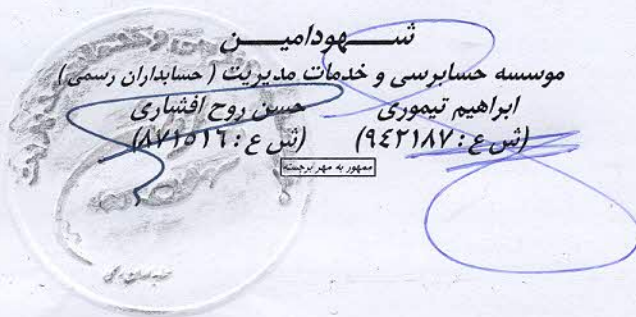 شهودامین
موسسه حسابرسی و خدمات مدیریت (حسابداران رسمی)
ابراهیم تیموری حسن روح افشاری
(ش ع : ۹٤۲۱۸۷) (ش ع : ۸۷۱٥۱٦)
ممهور به مهر برجسته